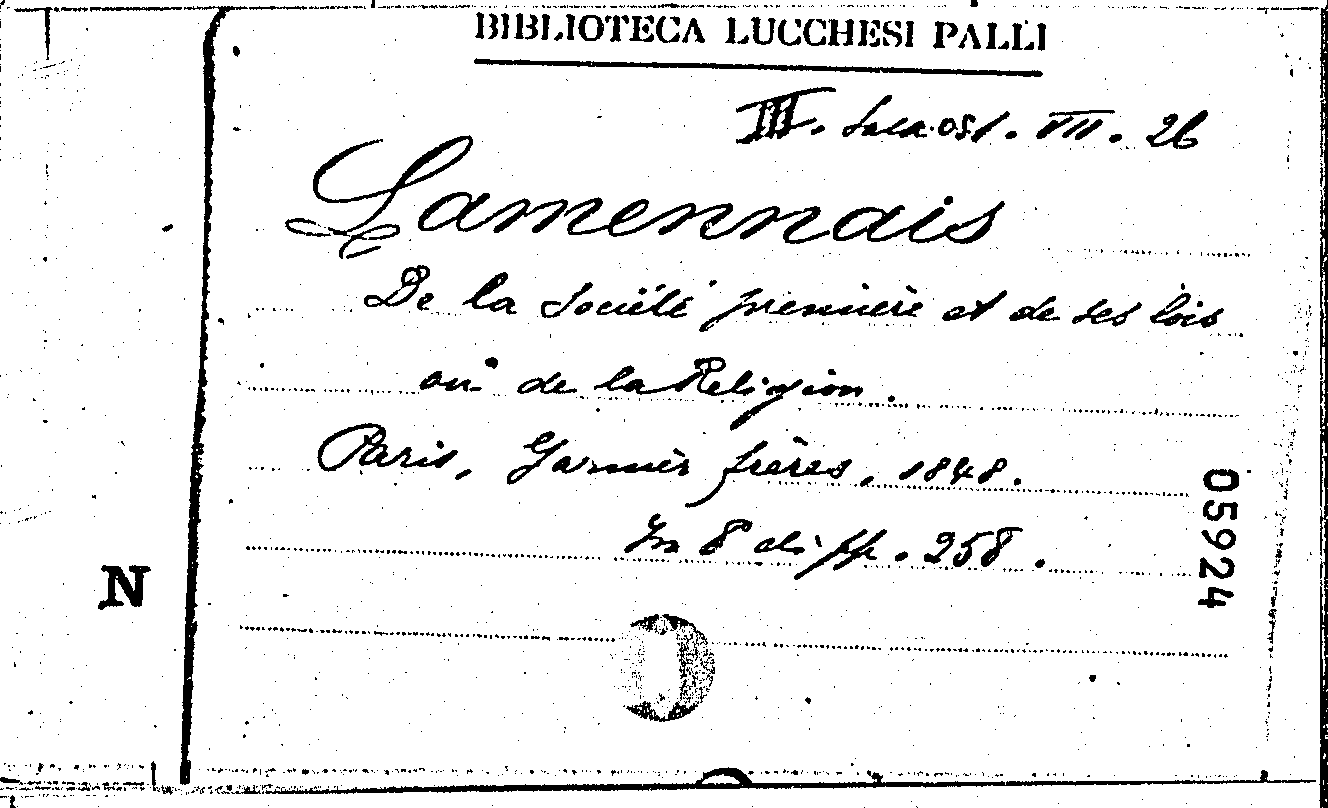 BIBLIOTECA LUCCHESI PALLI
III. Sala. 051. VII. 26
Lamennais
De la Société première et de ses lois
ou de la Religion.
Paris, Garnier frères, 1848.
In 8° di pp. 258.
05924
N